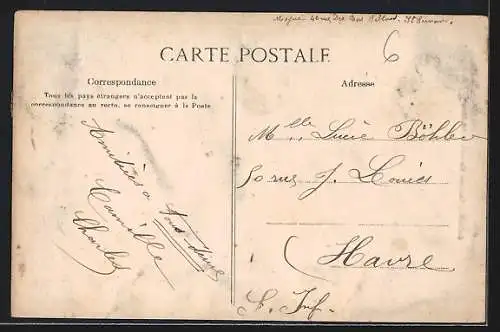 6
CARTE POSTALE
Correspondance
Tous les pays étrangers n'acceptent pas la
correspondance au recto, se renseigner à la Poste
Amitiés à
Camille
Charles
Adresse
Mlle Lucie Böhler
50 rue J. Louis
Havre
S. Inf.